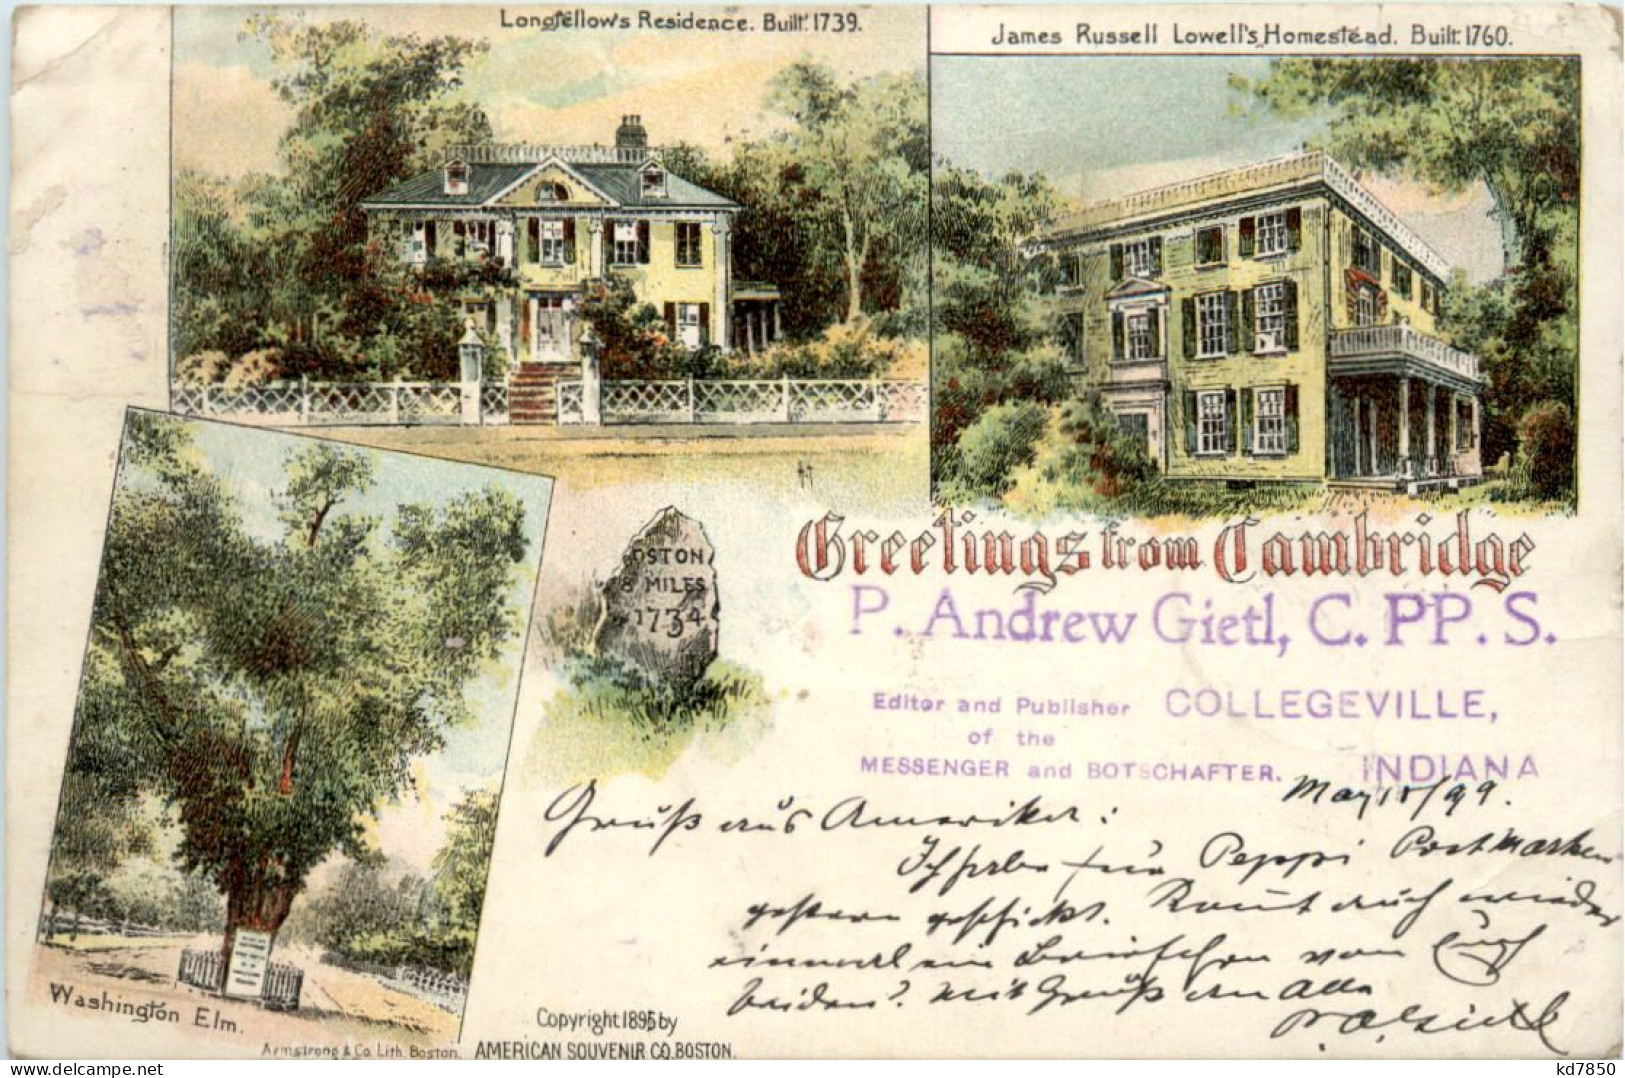 Longfellow's Residence. Built 1739.
James Russell Lowell's Homestead. Built 1760.
OSTON
8 MILES
1734
Greetings from Cambridge
P. Andrew Gietl, C. PP. S.
Editor and Publisher COLLEGEVILLE,
of the
MESSENGER and BOTSCHAFTER. INDIANA
May /99.
Gruß aus Amerika:
Ich habe für Peppi Postmarken
gestern geschickt. Kommt auch wieder
einmal ein Briefchen von Euch
beiden? Mit Gruß an Alle
Washington Elm.
Copyright 1895 by
Armstrong & Co. Lith. Boston. AMERICAN SOUVENIR CO. BOSTON.
kd7850